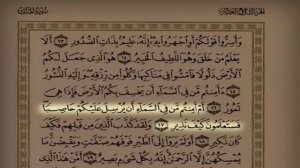 سُورَةُ المُلْكِ الجُزْءُ التَّاسِعُ وَالعِشْرُونَ
وَأَسِرُّوا۟ قَوْلَكُمْ أَوِ ٱجْهَرُوا۟ بِهِۦٓ إِنَّهُۥ عَلِيمٌۢ بِذَاتِ ٱلصُّدُورِ ١٣ أَلَا
يَعْلَمُ مَنْ خَلَقَ وَهُوَ ٱللَّطِيفُ ٱلْخَبِيرُ ١٤ هُوَ ٱلَّذِى جَعَلَ لَكُمُ
ٱلْأَرْضَ ذَلُولًا فَٱمْشُوا۟ فِى مَنَاكِبِهَا وَكُلُوا۟ مِن رِّزْقِهِۦ وَإِلَيْهِ ٱلنُّشُورُ
١٥ ءَأَمِنتُم مَّن فِى ٱلسَّمَآءِ أَن يَخْسِفَ بِكُمُ ٱلْأَرْضَ فَإِذَا هِىَ
تَمُورُ ١٦ أَمْ أَمِنتُم مَّن فِى ٱلسَّمَآءِ أَن يُرْسِلَ عَلَيْكُمْ حَاصِبًا
فَسَتَعْلَمُونَ كَيْفَ نَذِيرِ ١٧ وَلَقَدْ كَذَّبَ ٱلَّذِينَ مِن قَبْلِهِمْ فَكَيْفَ
كَانَ نَكِيرِ ١٨ أَوَلَمْ يَرَوْا۟ إِلَى ٱلطَّيْرِ فَوْقَهُمْ صَٰٓفَّٰتٍ وَيَقْبِضْنَ مَا
يُمْسِكُهُنَّ إِلَّا ٱلرَّحْمَٰنُ إِنَّهُۥ بِكُلِّ شَىْءٍۭ بَصِيرٌ ١٩ أَمَّنْ هَٰذَا ٱلَّذِى